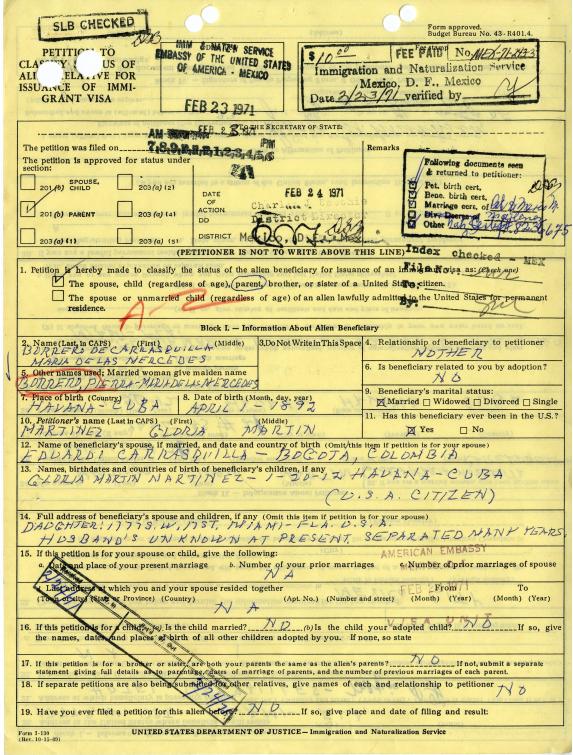 SLB CHECKED
Form approved.
Budget Bureau No. 43-R401.4.
PETITION TO
CLASSIFY STATUS OF
ALIEN RELATIVE FOR
ISSUANCE OF IMMI-
GRANT VISA
IMM & NATZ'N SERVICE
EMBASSY OF THE UNITED STATES
OF AMERICA - MEXICO
FEB 23 1971
$10.00 FEE PAID No. MEX-71-
Immigration and Naturalization Service
Mexico, D. F., Mexico
Date 2/23/71 verified by
TO THE SECRETARY OF STATE:
The petition was filed on
AM
7,8,9,
The petition is approved for status under
section:
201(b) SPOUSE, CHILD
203(a)(2)
201(b) PARENT
203(a)(4)
203(a)(1)
203(a)(5)
Remarks
DATE
OF
ACTION
DD
DISTRICT
FEB 24 1971
District Director
Mexico, D.
Following documents seen
& returned to petitioner:
Pet. birth cert.
Bene. birth cert.
Marriage cert. of
Div. Decree of
Other
(PETITIONER IS NOT TO WRITE ABOVE THIS LINE)
Index checked - MEX
File No.
To:
By:
1. Petition is hereby made to classify the status of the alien beneficiary for issuance of an immigrant visa as: (Check one)
The spouse, child (regardless of age), parent, brother, or sister of a United States citizen.
The spouse or unmarried child (regardless of age) of an alien lawfully admitted to the United States for permanent
residence.
Block I. — Information About Alien Beneficiary
2. Name (Last, in CAPS) (First) (Middle)
BORRERO DE CARRASQUILLA
MARIA DE LAS MERCEDES
3. Do Not Write in This Space
4. Relationship of beneficiary to petitioner
MOTHER
5. Other names used; Married woman give maiden name
BORRERO, PIEDRA-MARIA DE LAS MERCEDES
6. Is beneficiary related to you by adoption?
NO
7. Place of birth (Country)
HAVANA-CUBA
8. Date of birth (Month, day, year)
APRIL 1-1892
9. Beneficiary's marital status:
Married Widowed Divorced Single
10. Petitioner's name (Last, in CAPS) (First) (Middle)
MARTINEZ GLORIA MARTIN
11. Has this beneficiary ever been in the U.S.?
Yes No
12. Name of beneficiary's spouse, if married, and date and country of birth (Omit this item if petition is for your spouse)
EDUARDI CARRASQUILLA - BOGOTA, COLOMBIA
13. Names, birthdates and countries of birth of beneficiary's children, if any
GLORIA MARTIN MARTINEZ - 1-20-12 HAVANA-CUBA
(U.S.A. CITIZEN)
14. Full address of beneficiary's spouse and children, if any (Omit this item if petition is for your spouse)
DAUGHTER: 1777 S.W. 17 ST. MIAMI-FLA. U.S.A.
HUSBAND'S UNKNOWN AT PRESENT. SEPARATED MANY YEARS.
15. If this petition is for your spouse or child, give the following:
a. Date and place of your present marriage
b. Number of your prior marriages
c. Number of prior marriages of spouse
NA
AMERICAN EMBASSY
FEB 1971
VISA UNIT
Last address at which you and your spouse resided together
From To
(Town or city) (State or Province) (Country) (Apt. No.) (Number and street) (Month) (Year) (Month) (Year)
NA
16. If this petition is for a child, (a) Is the child married? NO (b) Is the child your adopted child? NO If so, give
the names, dates, and places of birth of all other children adopted by you. If none, so state
17. If this petition is for a brother or sister, are both your parents the same as the alien's parents? NO If not, submit a separate
statement giving full details as to parentage, dates of marriage of parents, and the number of previous marriages of each parent.
18. If separate petitions are also being submitted for other relatives, give names of each and relationship to petitioner NO
19. Have you ever filed a petition for this alien before? NO If so, give place and date of filing and result:
Form I-130
(Rev. 10-15-69)
UNITED STATES DEPARTMENT OF JUSTICE — Immigration and Naturalization Service